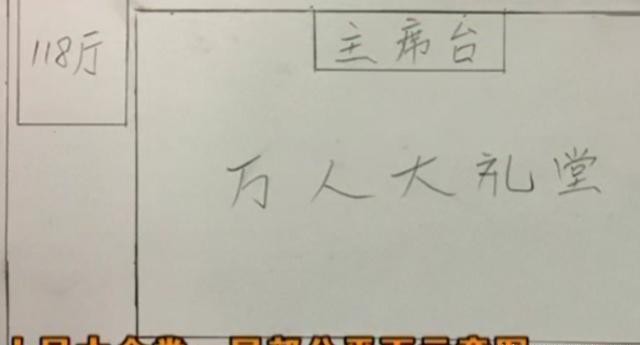 118厅
主席台
万人大礼堂